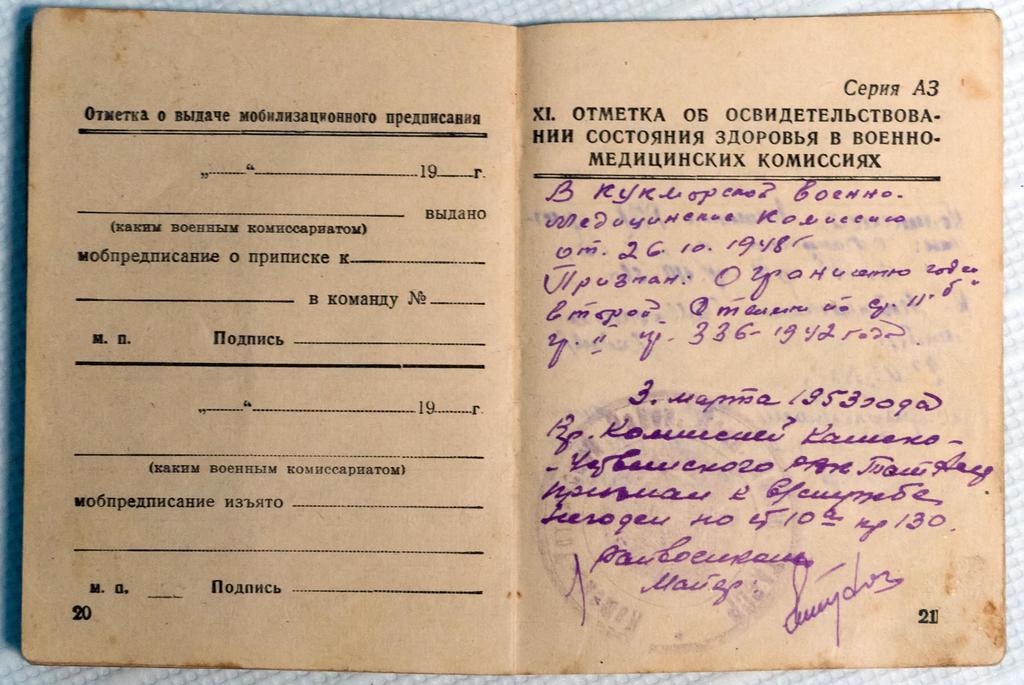 Отметка о выдаче мобилизационного предписания
„ “ 19 г.
выдано
(каким военным комиссариатом)
мобпредписание о приписке к
в команду №
м. п. Подпись
„ “ 19 г.
(каким военным комиссариатом)
мобпредписание изъято
м. п. Подпись
20
Серия АЗ
XI. ОТМЕТКА ОБ ОСВИДЕТЕЛЬСТВОВА-
НИИ СОСТОЯНИЯ ЗДОРОВЬЯ В ВОЕННО-
МЕДИЦИНСКИХ КОМИССИЯХ
В Кукморской Военно-
Медицинские Комиссию
от. 26. 10. 1948 г
Признан: Ограничено годен
второй степени по ст. 11 "б"
гр. II пр. 336-1942 года
3. марта 1953 года
Вр. Комиссией Камско-
-Устьинского РВК Тат
признан к в/службе
негоден по ст 10а пр 130.
Райвоенком
Майор
21